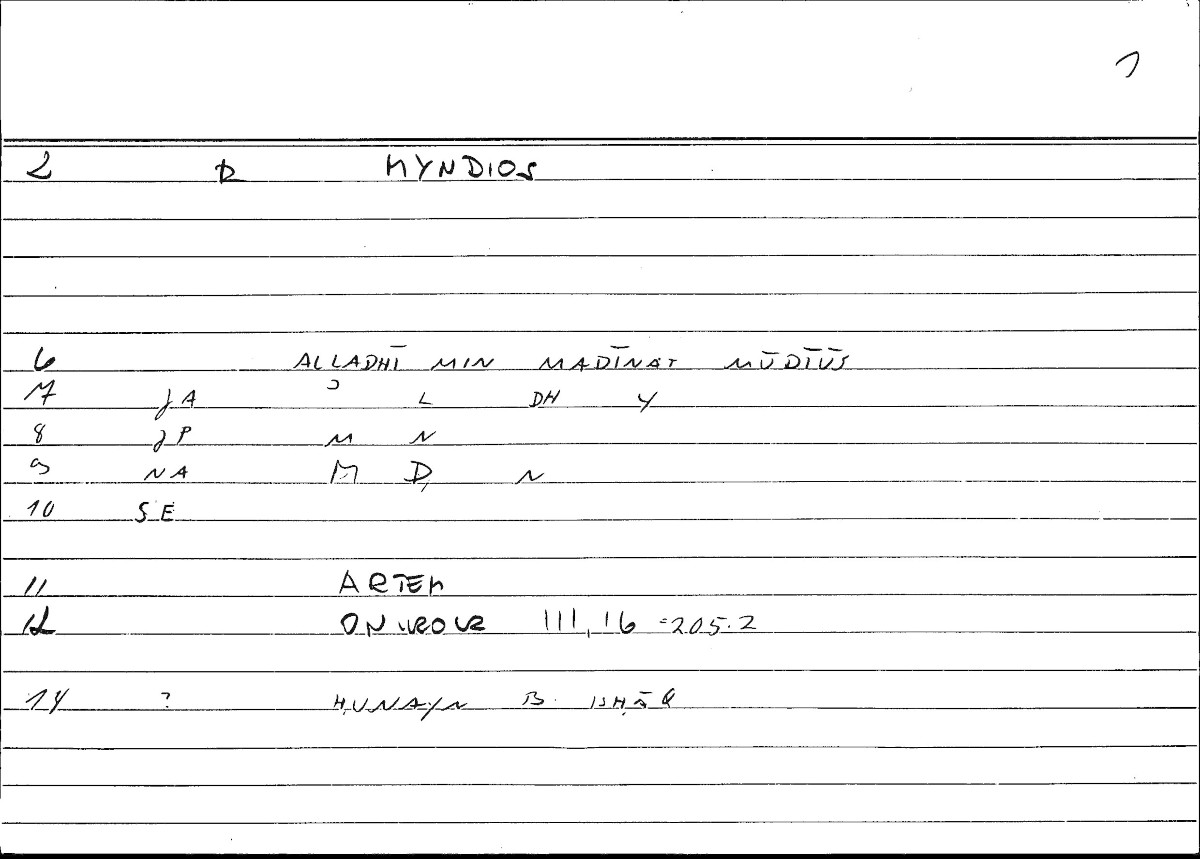 2 D MYNDIOS
6 ALLADHĪ MIN MADĪNAT MŪDĪŪS
7 JA ʾ L DH Y
8 JP M N
9 NA M D N
10 SE
11 ARTEM
12 ONIROCR III,16 =205.2
14 ? ḤUNAYN B. ISḤĀQ